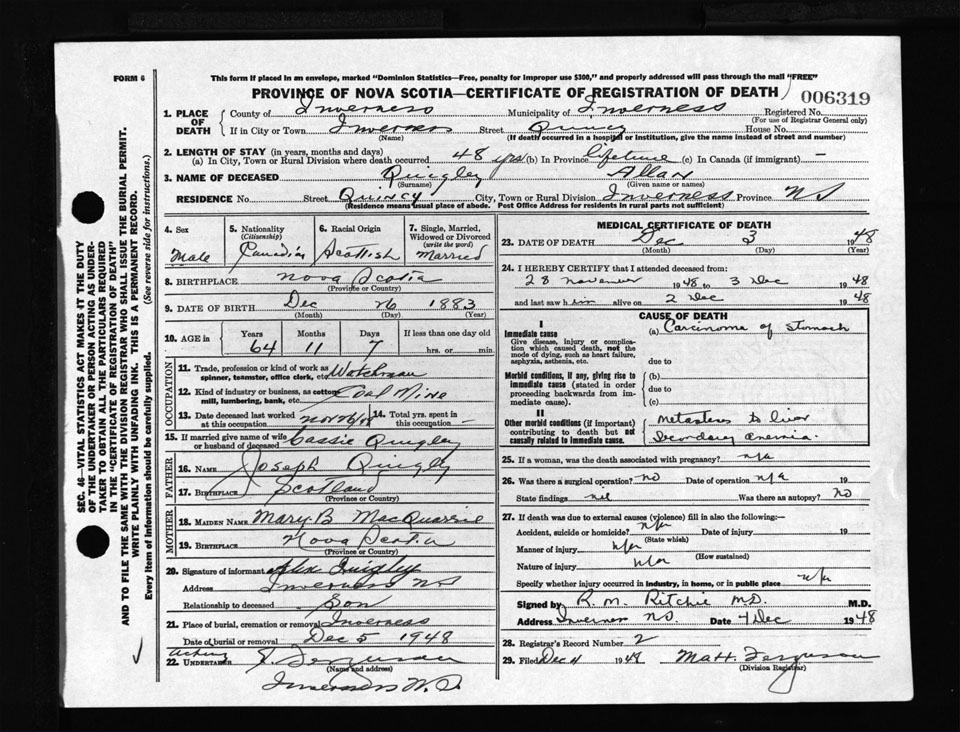 FORM 6
This form if placed in an envelope, marked "Dominion Statistics—Free, penalty for improper use $300," and properly addressed will pass through the mail "FREE"
PROVINCE OF NOVA SCOTIA—CERTIFICATE OF REGISTRATION OF DEATH
006319
1. PLACE OF DEATH
County of Inverness Municipality of Inverness Registered No.
(For use of Registrar General only)
If in City or Town Inverness Street Quincy House No.
(Name) (If death occurred in a hospital or institution, give the name instead of street and number)
2. LENGTH OF STAY (in years, months and days)
(a) In City, Town or Rural Division where death occurred 48 yrs (b) In Province lifetime (c) In Canada (if immigrant) —
3. NAME OF DECEASED Quigley Allan
(Surname) (Given name or names)
RESIDENCE No. Street Quincy City, Town or Rural Division Inverness Province NS
(Residence means usual place of abode. Post Office Address for residents in rural parts not sufficient)
4. Sex Male
5. Nationality (Citizenship) Canadian
6. Racial Origin Scottish
7. Single, Married, Widowed or Divorced (write the word) Married
8. BIRTHPLACE Nova Scotia
(Province or Country)
9. DATE OF BIRTH Dec 26 1883
(Month) (Day) (Year)
10. AGE in Years Months Days If less than one day old
64 11 7 hrs. or min.
OCCUPATION
11. Trade, profession or kind of work as spinner, teamster, office clerk, etc. Watchman
12. Kind of industry or business, as cotton mill, lumbering, bank, etc. Coal Mine
13. Date deceased last worked at this occupation Nov 26/48
14. Total yrs. spent in this occupation —
15. If married give name of wife or husband of deceased Cassie Quigley
FATHER
16. NAME Joseph Quigly
17. BIRTHPLACE Scotland
(Province or Country)
MOTHER
18. MAIDEN NAME Mary B MacQuarrie
19. BIRTHPLACE Nova Scotia
(Province or Country)
20. Signature of informant Alex Quigley
Address Inverness NS
Relationship to deceased Son
21. Place of burial, cremation or removal Inverness
Date of burial or removal Dec 5 1948
Acting
22. UNDERTAKER Ferguson
(Name and address)
Inverness N.S.
MEDICAL CERTIFICATE OF DEATH
23. DATE OF DEATH Dec 3 1948
(Month) (Day) (Year)
24. I HEREBY CERTIFY that I attended deceased from:
28 November 1948 to 3 Dec 1948
and last saw him alive on 2 Dec 1948
CAUSE OF DEATH
I
Immediate cause
Give disease, injury or complication which caused death, not the mode of dying, such as heart failure, asphyxia, asthenia, etc.
(a) Carcinoma of Stomach
due to
Morbid conditions, if any, giving rise to immediate cause (stated in order proceeding backwards from immediate cause).
(b)
due to
(c)
II
Other morbid conditions (if important) contributing to death but not causally related to immediate cause.
Metastases to liver
Secondary anemia.
25. If a woman, was the death associated with pregnancy? n/a
26. Was there a surgical operation? no Date of operation n/a 19
State findings nil Was there an autopsy? No
27. If death was due to external causes (violence) fill in also the following:—
Accident, suicide or homicide? n/a Date of injury 19
(State which)
Manner of injury n/a
(How sustained)
Nature of injury n/a
Specify whether injury occurred in industry, in home, or in public place n/a
Signed by R. M. Ritchie M.D. M.D.
Address Inverness NS. Date 4 Dec 1948
28. Registrar's Record Number 2
29. Filed Dec 4 1948 Matt. Ferguson
(Division Registrar)
SEC. 46—VITAL STATISTICS ACT MAKES IT THE DUTY
OF THE UNDERTAKER OR PERSON ACTING AS UNDER-
TAKER TO OBTAIN ALL THE PARTICULARS REQUIRED
IN THE "CERTIFICATE OF REGISTRATION OF DEATH"
AND TO FILE THE SAME WITH THE DIVISION REGISTRAR WHO SHALL ISSUE THE BURIAL PERMIT.
WRITE PLAINLY WITH UNFADING INK. THIS IS A PERMANENT RECORD.
Every item of information should be carefully supplied. (See reverse side for instructions.)